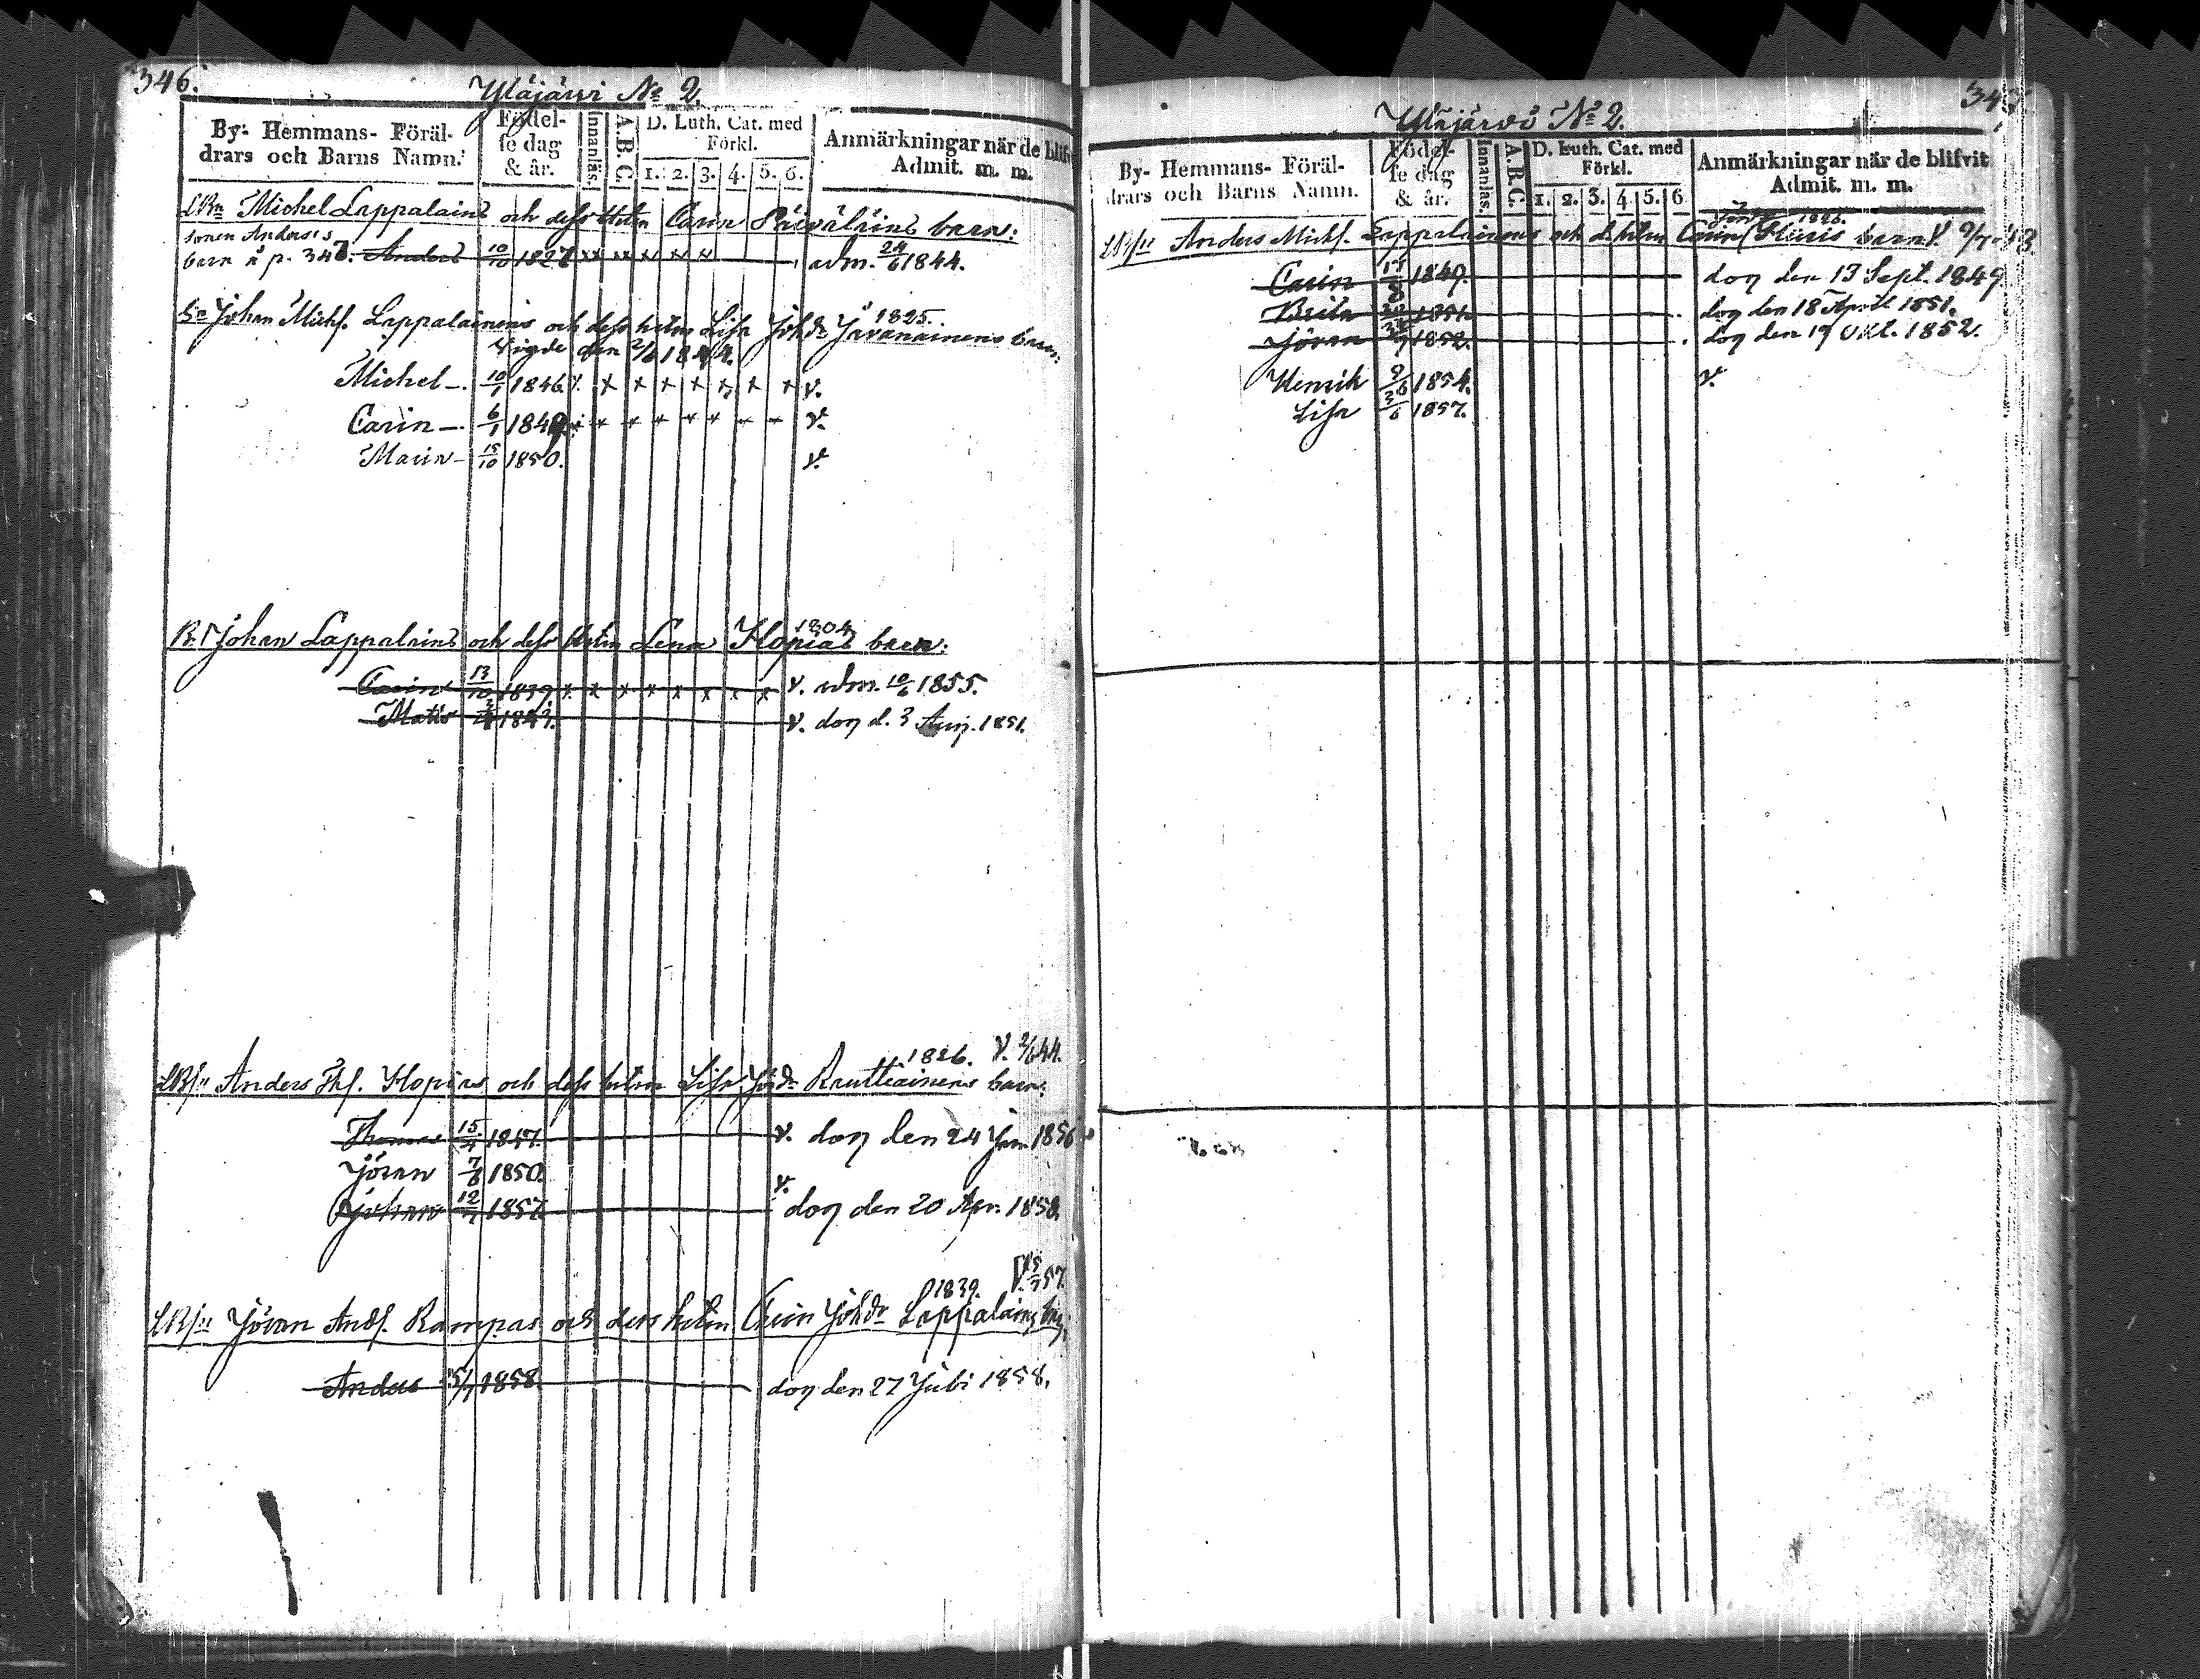 346.
Yläjärvi No 2.
By- Hemmans- Föräl-
drars och Barns Namn.
Födel-
se dag
& år.
Innanläs.
A.B.C.
D. Luth. Cat. med
Förkl.
1. 2. 3. 4. 5. 6.
Anmärkningar när de blifv
Admit. m. m.
Michel Lappalains och dess Hstn Carin Päiväläins barn:
sonen Anderses
barn å p. 347. Anders 10/10 1827 adm. 24/6 1844.
1825.
Sn Johan Michs. Lappalainens och dess hstn Lisa Johdr Javanainens barn:
Vigde den 2/6 1844.
Michel 10/1 1846. v.
Carin 6/1 1849. v.
Maria 15/10 1850. v.
1804
Br. Johan Lappalains och dess Hstn Lena Hopias barn:
Carin 13/10 1839. v. adm. 10/6 1855.
Matts 1843. v. dog d. 3 Aug. 1851.
1826. V. 2/6 44.
Anders Ths. Hopias och dess hstn Lisa Jördr Rauttiainens barn:
Thomas 15/4 1847. v. dog den 24 Jan 1856
Jöran 7/8 1850. v.
Johan 12/7 1857. dog den 20 Apr. 1858.
1839. V. 57.
Jöran Ands. Rampas och dess hstn Carin Johdr Lappalains
Anders 5/7 1858. dog den 27 Juli 1858.
Yläjärvi No 2.
By- Hemmans- Föräl-
drars och Barns Namn.
Födel-
se dag
& år.
Innanläs.
A.B.C.
D. Luth. Cat. med
Förkl.
1. 2. 3. 4. 5. 6
Anmärkningar när de blifvit
Admit. m. m.
1826.
Anders Michs. Lappalainens och d. hstn Carin barn
Carin 1849. dog den 13 Sept. 1849
Brita 1851. dog den 18 April 1851.
Jöran 1852. dog den 19 Okt. 1852.
Henrik 1854. v.
Lisa 1857.